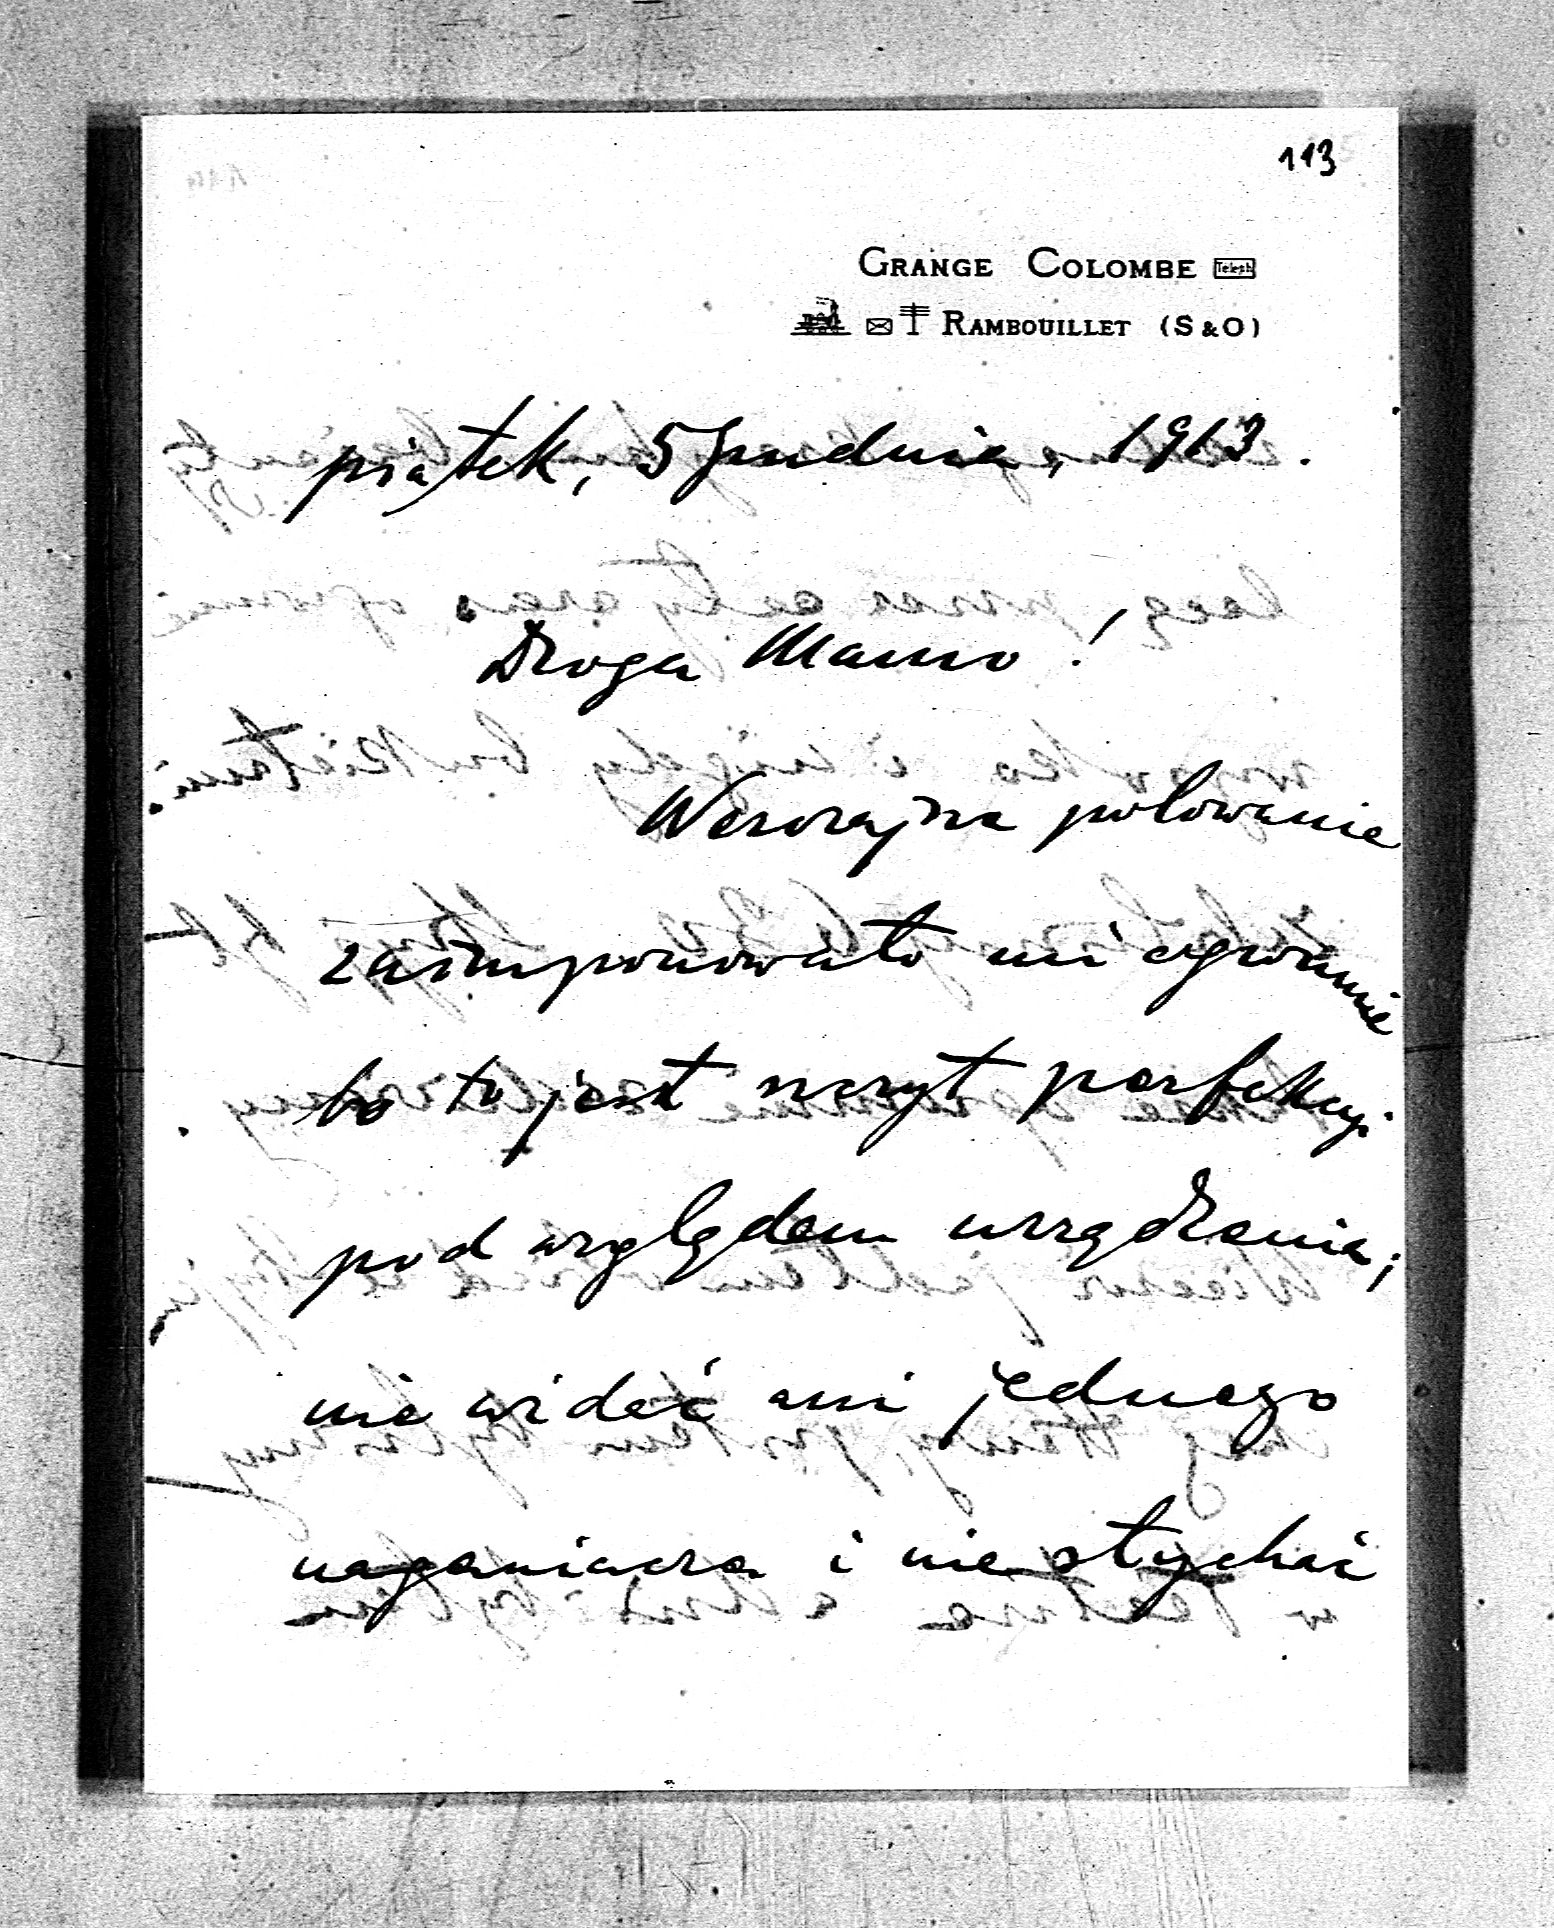 113
GRANGE COLOMBE Teleph
RAMBOUILLET (S & O)
piątek, 5 Grudnia, 1913.
Droga Mamo!
Wczorajsze polowanie
zaimponowało mi ogromnie
bo to jest szczyt perfekcyi
pod względem urządzenia;
nie widać ani jednego
naganiacza i nie słychać